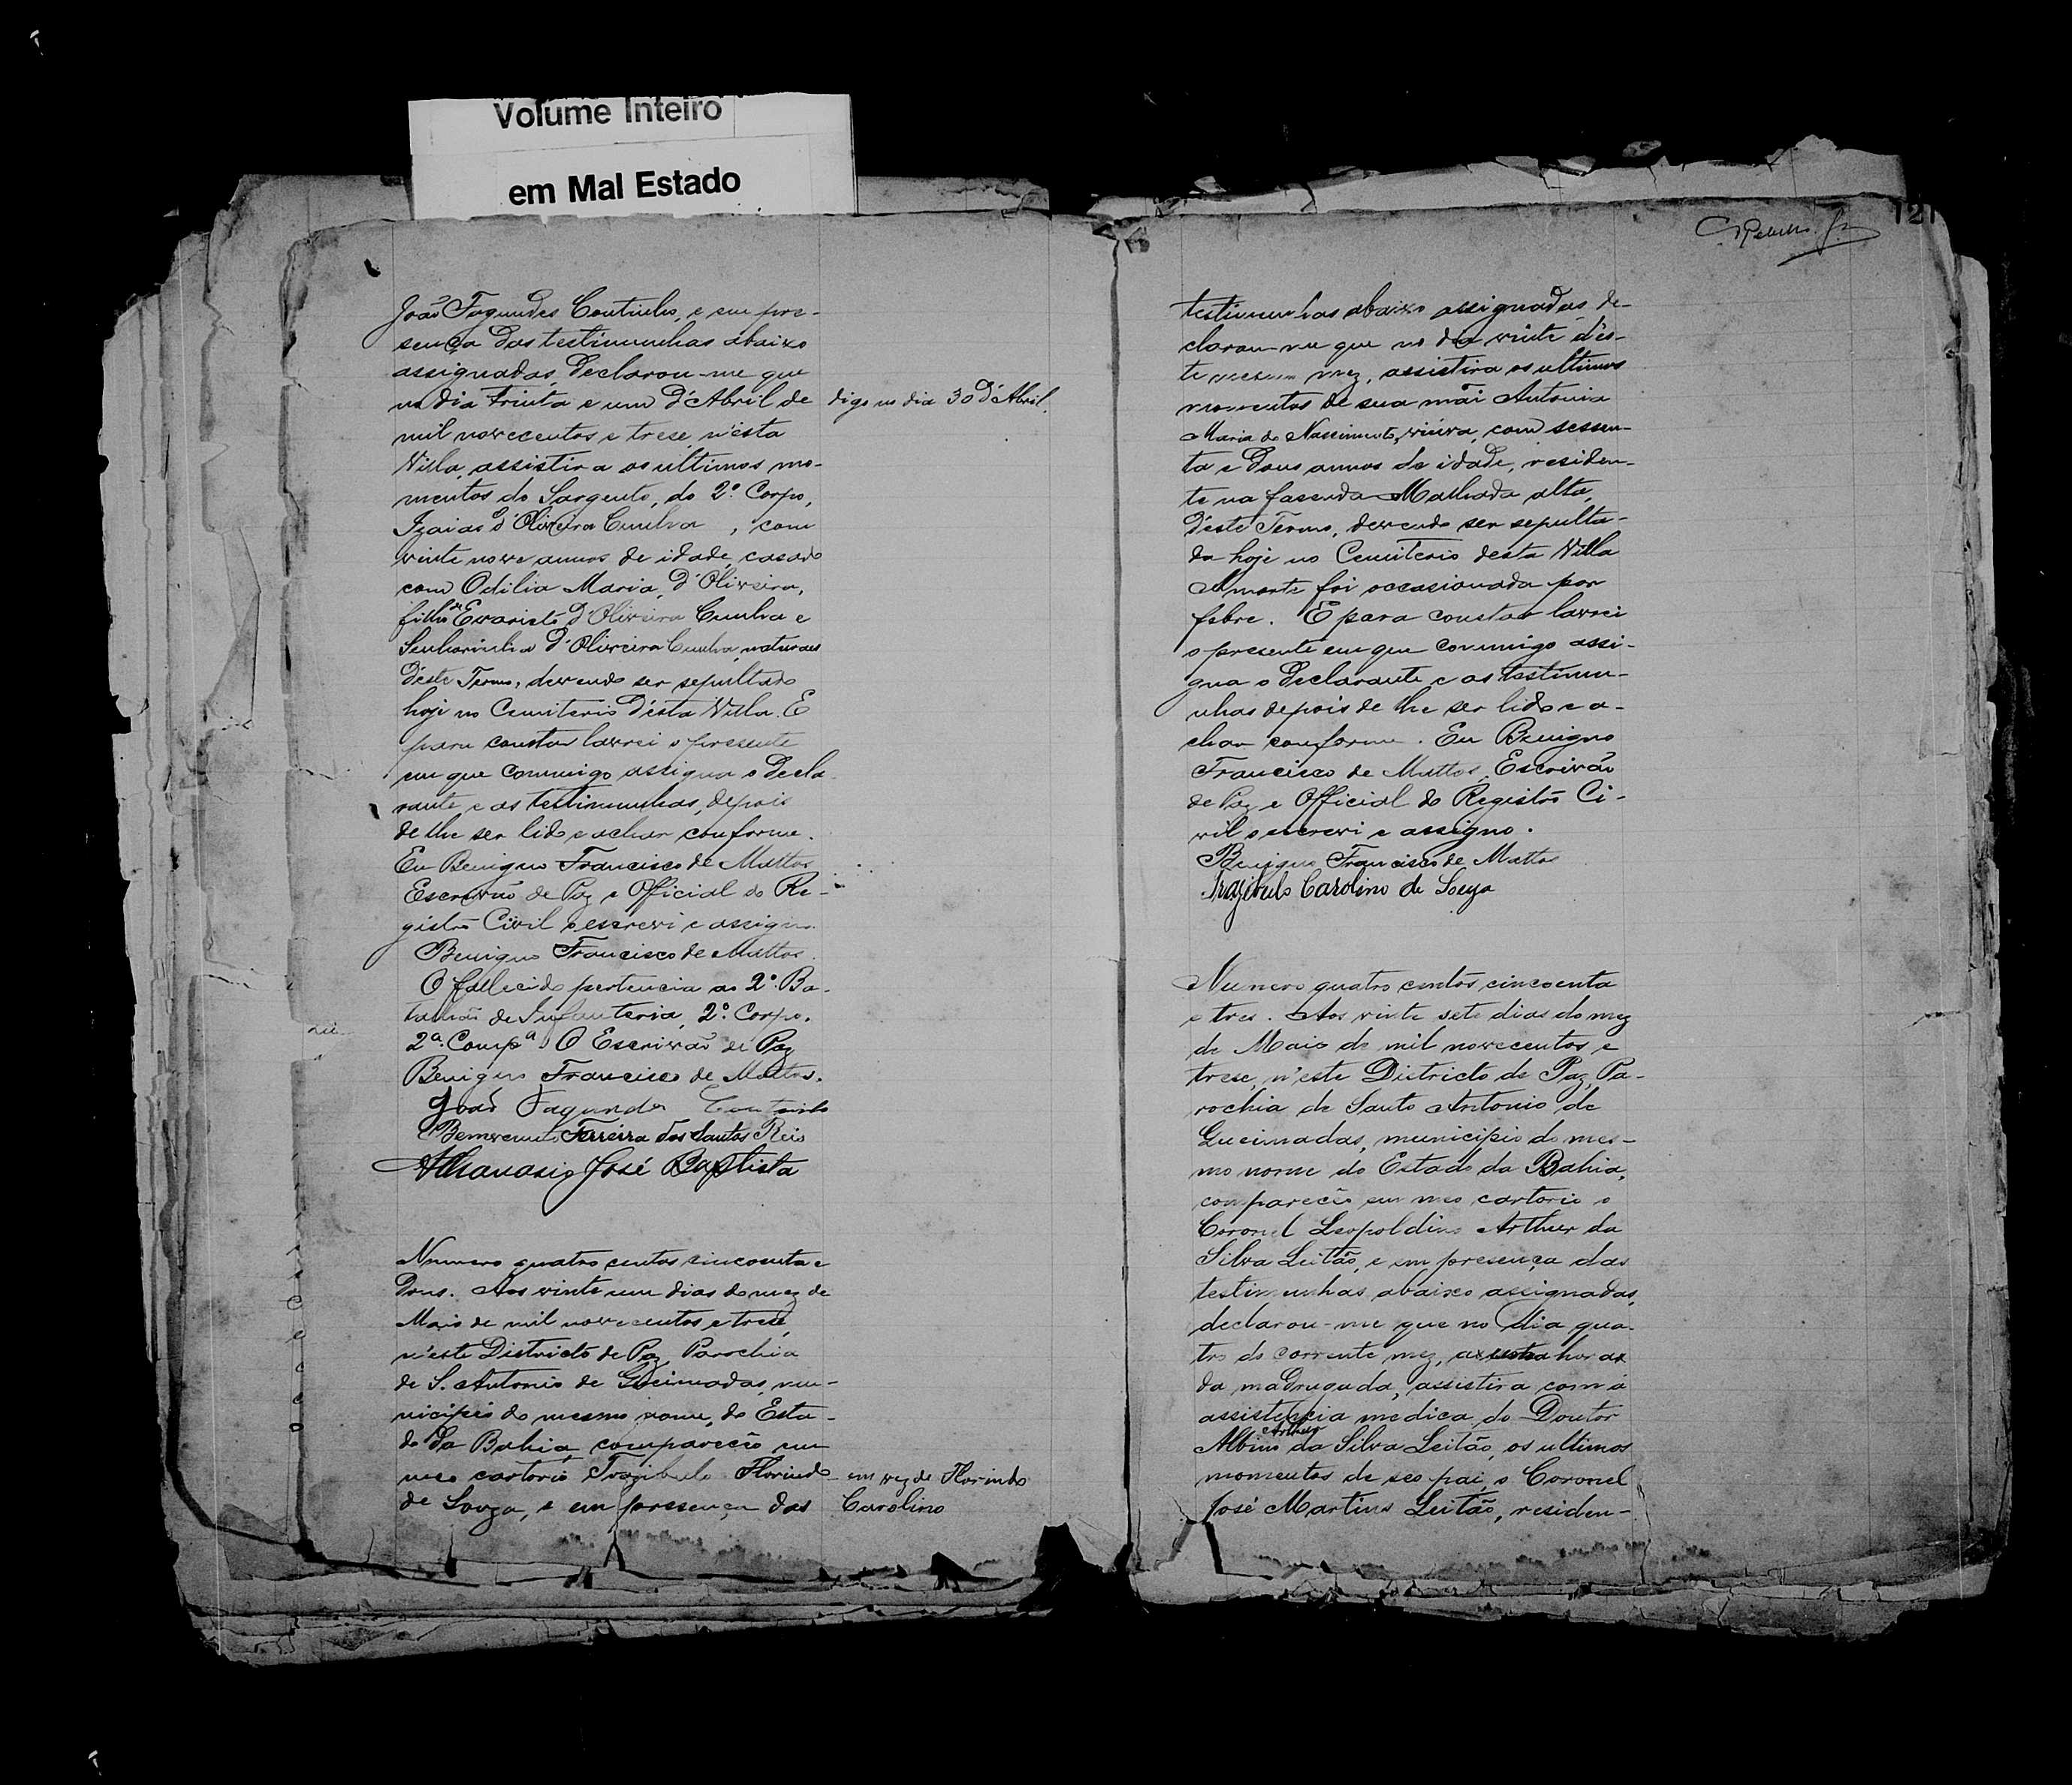 Volume Inteiro
em Mal Estado
João Fagundes Coutinho, e em pre-
sença das testimunhas abaixo
assignadas, declarou-me que
no dia trinta e um d'Abril de digo no dia 30 d'Abril.
mil novecentos e trese, n'esta
Villa, assistira os ultimos mo-
mentos do Sargento, do 2º. Corpo,
Izaias d'Oliveira Cunha, com
vinte nove annos de idade, casado
com Odilia Maria d'Oliveira,
filho de Evaristo d'Oliveira Cunha e
Senhorinha d'Oliveira Cunha, naturaes
d'este Termo, devendo ser sepultado
hoje no Cemiterio d'esta Villa. E
para constar lavrei o presente
em que commigo assigna o decla-
rante e as testimunhas, depois
de lhe ser lido e achar conforme.
Eu Benigno Francisco de Mattos
Escrivão de Paz e Official do Re-
gistro Civil o escrevi e assigno.
Benigno Francisco de Mattos.
O fallecido pertencia ao 2º. Ba-
talhão de Infanteria, 2º. Corpo.
2ª. Compª. O Escrivão de Paz
Benigno Francisco de Mattos.
João Fagundes Coutinho
Bemvenuto Ferreira dos Santos Reis
Athanasio José Baptista
Numero quatro centos cincoenta e
dous. Aos vinte um dias do mez de
Maio de mil novecentos e trese,
n'este Districto de Paz, Parochia
de S. Antonio de Queimadas, mu-
nicipio do mesmo nome, do Esta-
do da Bahia, compareceo em
meo cartorio Trazibulo Florindo em vez de Florindo
de Souza, e em presença das Carolino
121
testimunhas abaixo assignadas, de-
clarou-me que no dia vinte d'es-
te mesmo mez, assistira os ultimos
momentos de sua mãi Antonia
Maria do Nascimento, viuva, com sessen-
ta e dous annos de idade, residen-
te na fasenda Malhada alta,
d'este Termo, devendo ser sepulta-
da hoje no Cemiterio desta Villa
A morte foi occasionada por
febre. E para constar lavrei
o presente em que commigo assi-
gna o declarante e as testimu-
nhas depois de lhe ser lido e a-
char conforme. Eu Benigno
Francisco de Mattos, Escrivão
de Paz e Official do Registro Ci-
vil o escrevi e assigno.
Benigno Francisco de Mattos
Trazibulo Carolino de Souza
Numero quatro centos cincoenta
e tres. Aos vinte sete dias do mez
de Maio de mil novecentos e
trese, n'este Districto de Paz, Pa-
rochia de Santo Antonio de
Queimadas, municipio do mes-
mo nome do Estado da Bahia,
compareceo em meo cartorio o
Coronel Leopoldino Arthur da
Silva Leitão, e em presença das
testimunhas abaixo assignadas,
declarou-me que no dia qua-
tro do corrente mez, as horas
da madrugada, assistira com a
assistencia medica do Doutor
Albino Arthur da Silva Leitão, os ultimos
momentos de seo pai, o Coronel
José Martins Leitão, residen-